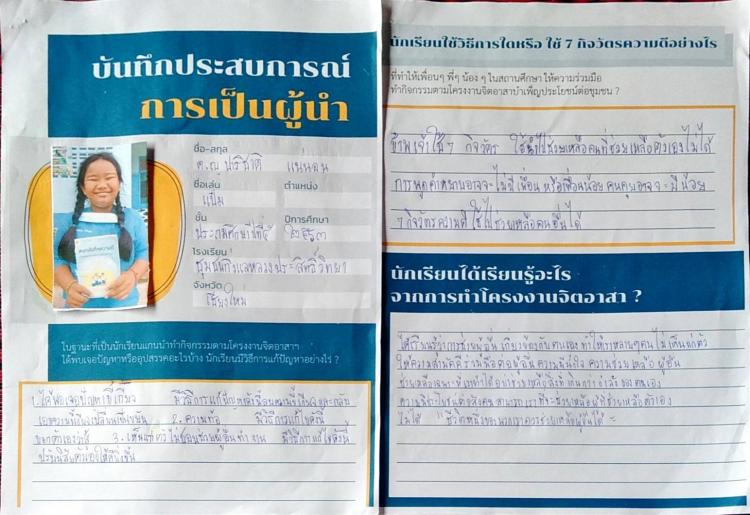 บันทึกประสบการณ์
การเป็นผู้นำ
ชื่อ-สกุล
ด.ญ. ปาริชาติ แน่นอน
ชื่อเล่น ตำแหน่ง
แป้ม
ชั้น ปีการศึกษา
ประถมศึกษาปีที่ ๕ ๒๕๖๓
โรงเรียน
ชุมชนกิ่วแลหลวงประสิทธิ์วิทยา
จังหวัด
เชียงใหม่
ในฐานะที่เป็นนักเรียนแกนนำทำกิจกรรมตามโครงงานจิตอาสาฯ
ได้พบเจอปัญหาหรืออุปสรรคอะไรบ้าง นักเรียนมีวิธีการแก้ปัญหาอย่างไร ?
1. ได้พบเจอปัญหาขี้เกียจ มีวิธีการแก้ปัญหา
2. ความท้อ มีวิธีการแก้ไขดังนี้
3. เห็นแก่ตัว ไม่ชอบช่วยผู้อื่นทำงาน มีวิธีการแก้ไขดังนี้
ให้ดียิ่งขึ้น
นักเรียนใช้วิธีการใดหรือ ใช้ 7 กิจวัตรความดีอย่างไร
ที่ทำให้เพื่อนๆ พี่ๆ น้อง ๆ ในสถานศึกษา ให้ความร่วมมือ
ทำกิจกรรมตามโครงงานจิตอาสาบำเพ็ญประโยชน์ต่อชุมชน ?
ข้าพเจ้าใช้ 7 กิจวัตร ใช้นำไปช่วยเหลือคนที่ช่วยเหลือตัวเองไม่ได้
การพูดคำหยาบอาจจะไม่มีเพื่อน หรือเพื่อนน้อย คนคุยอาจจะมีน้อย
7 กิจวัตรความดี ใช้ไปช่วยเหลือคนอื่นได้
นักเรียนได้เรียนรู้อะไร
จากการทำโครงงานจิตอาสา ?
ได้เรียนรู้ว่าการช่วยผู้อื่น เกี่ยวข้องกับตนเอง ทำให้เราหลายๆคน ไม่เห็นแก่ตัว
ให้ความสามัคคี ร่วมมือต่อผู้อื่น ความมีน้ำใจ ความช่วยเหลือ ผู้อื่น
ช่วยเหลือ ของตนเอง
ช่วยเหลือผู้ที่ช่วยเหลือตัวเอง
ไม่ได้ "ชีวิตหนึ่งของพวกเราควรช่วยเหลือผู้อื่นได้"